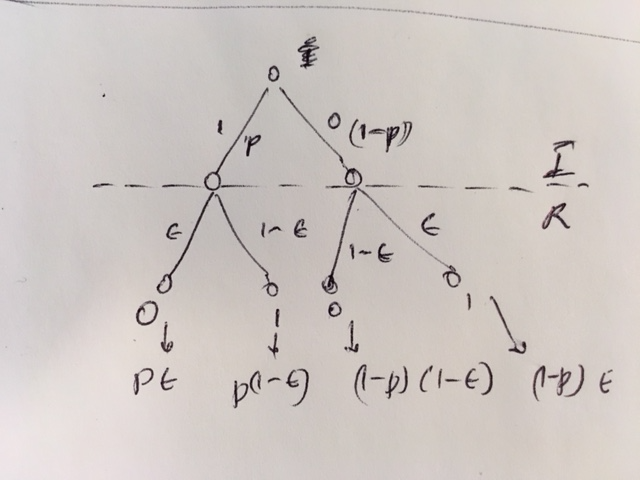 1 p 0 (1-p)
I
R
ϵ 1-ϵ 1-ϵ ϵ
0 1 0 1
pϵ p(1-ϵ) (1-p)(1-ϵ) (1-p)ϵ